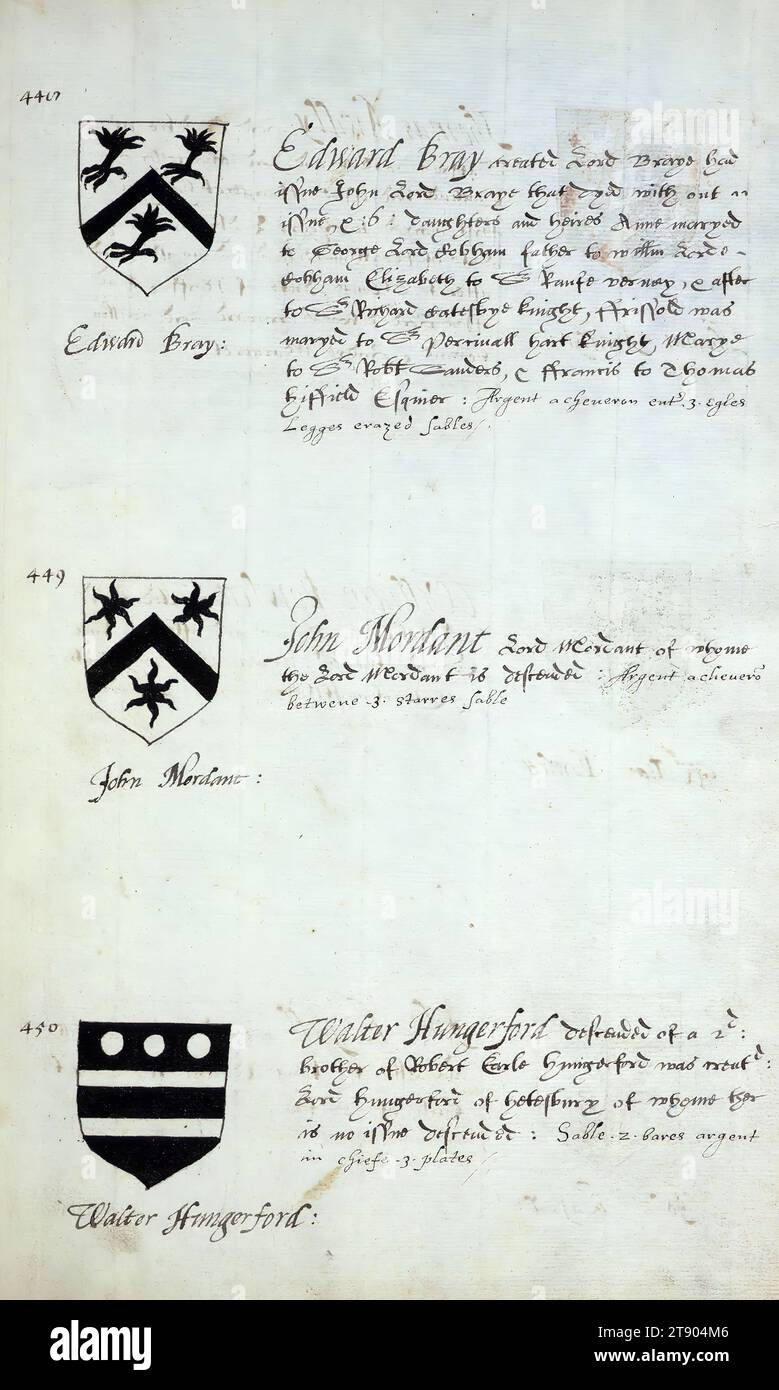 Edward Bray created Lord Braye had
issue John Lord Braye that dyed with out
issue, & :6: daughters and heires Anne maryed
to George Lord Cobham father to willm Lord
Cobham Elizabeth to Sr Raufe vernay, & after
to Sr Richard Catesbye knight, ffrissold was
maryed to Sr Percivall hart knight, Marye
to Sr Robt Sanders, & ffrancis to Thomas
Esquier : Argent a cheveron entr .3. egles
Legges erazed sables
Edward Bray :
449
John Mordant Lord Mordant of whome
the Lord Mordant is descended : Argent a chevero
betwene .3. starres sable
John Mordant :
450
Walter Hungerford descended of a 2d :
brother of Robert Earle Hungerford was creatd :
Lord Hungerford of hetesbury of whome ther
is no issue descended : Sable .2. bares argent
in chiefe .3. plates
Walter Hungerford :
alamy
Image ID: 2T904M6
www.alamy.com